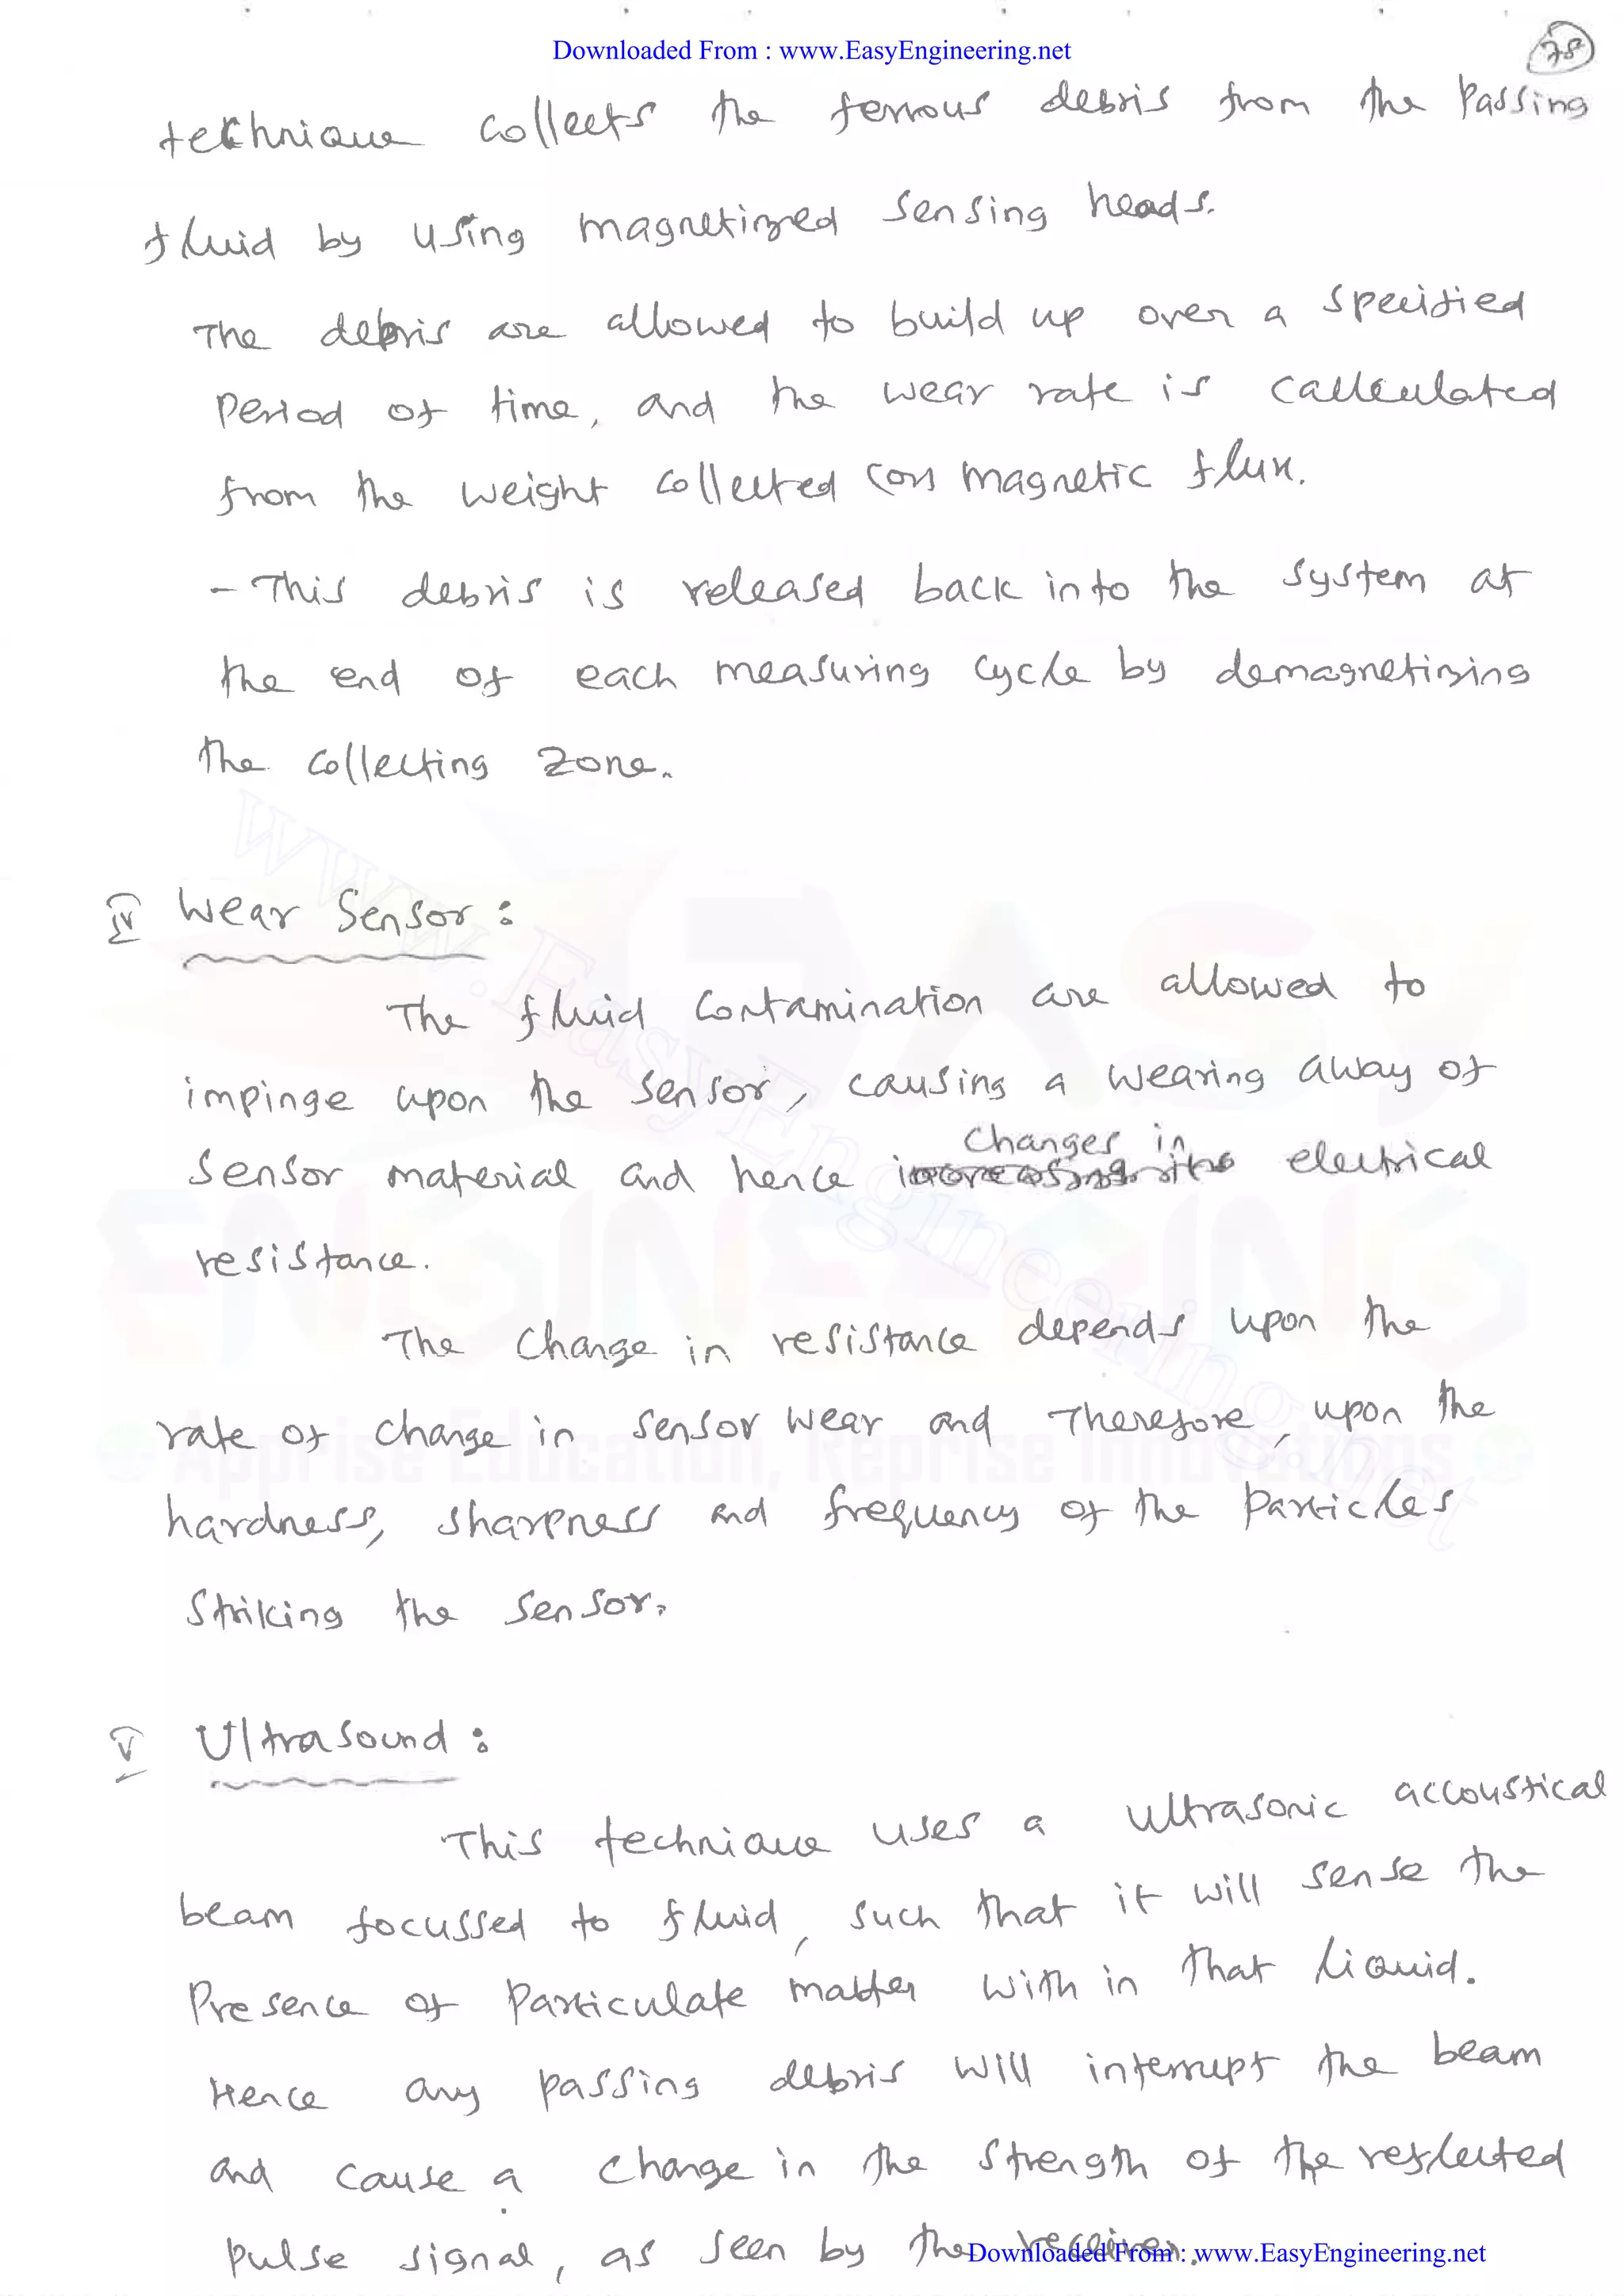 Downloaded From : www.EasyEngineering.net
78
technique collects the ferrous debris from the Passing
fluid by using magnetized Sensing heads.
The debris are allowed to build up over a Specified
Period of time, and the wear rate is calculated
from the weight collected (or) magnetic flux.
- This debris is released back into the System at
the end of each measuring cycle by demagnetizing
the collecting Zone.
IV Wear Sensor :
The fluid Contamination are allowed to
impinge upon the Sensor, causing a wearing away of
Changes in
Sensor material and hence electrical
resistance.
The Change in resistance depends upon the
rate of change in Sensor Wear and Therefore, upon the
hardness, sharpness and frequency of the Particles
Striking the Sensor.
V Ultrasound :
This technique uses a Ultrasonic accoustical
beam focussed to fluid, such that it will sense the
Presence of Particulate matter with in that liquid.
Hence any passing debris will interrupt the beam
and cause a change in the Strength of the reflected
Pulse signal, as seen by the receiver.
Downloaded From : www.EasyEngineering.net
www.EasyEngineering.net
EASY
ENGINEERING
Apprise Education, Reprise Innovations